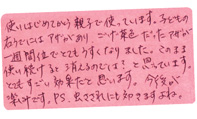 使いはじめてから親子で使っています。子どもの
右うでにはアザがあり、こげ茶色だったアザが
一週間位でとてもうすくなりました。このまま
使い続けると消えるのでは？と思っています。
とてもすごい効果だと思います。今後が
楽しみです。P.S. 虫さされにも効きますよね。